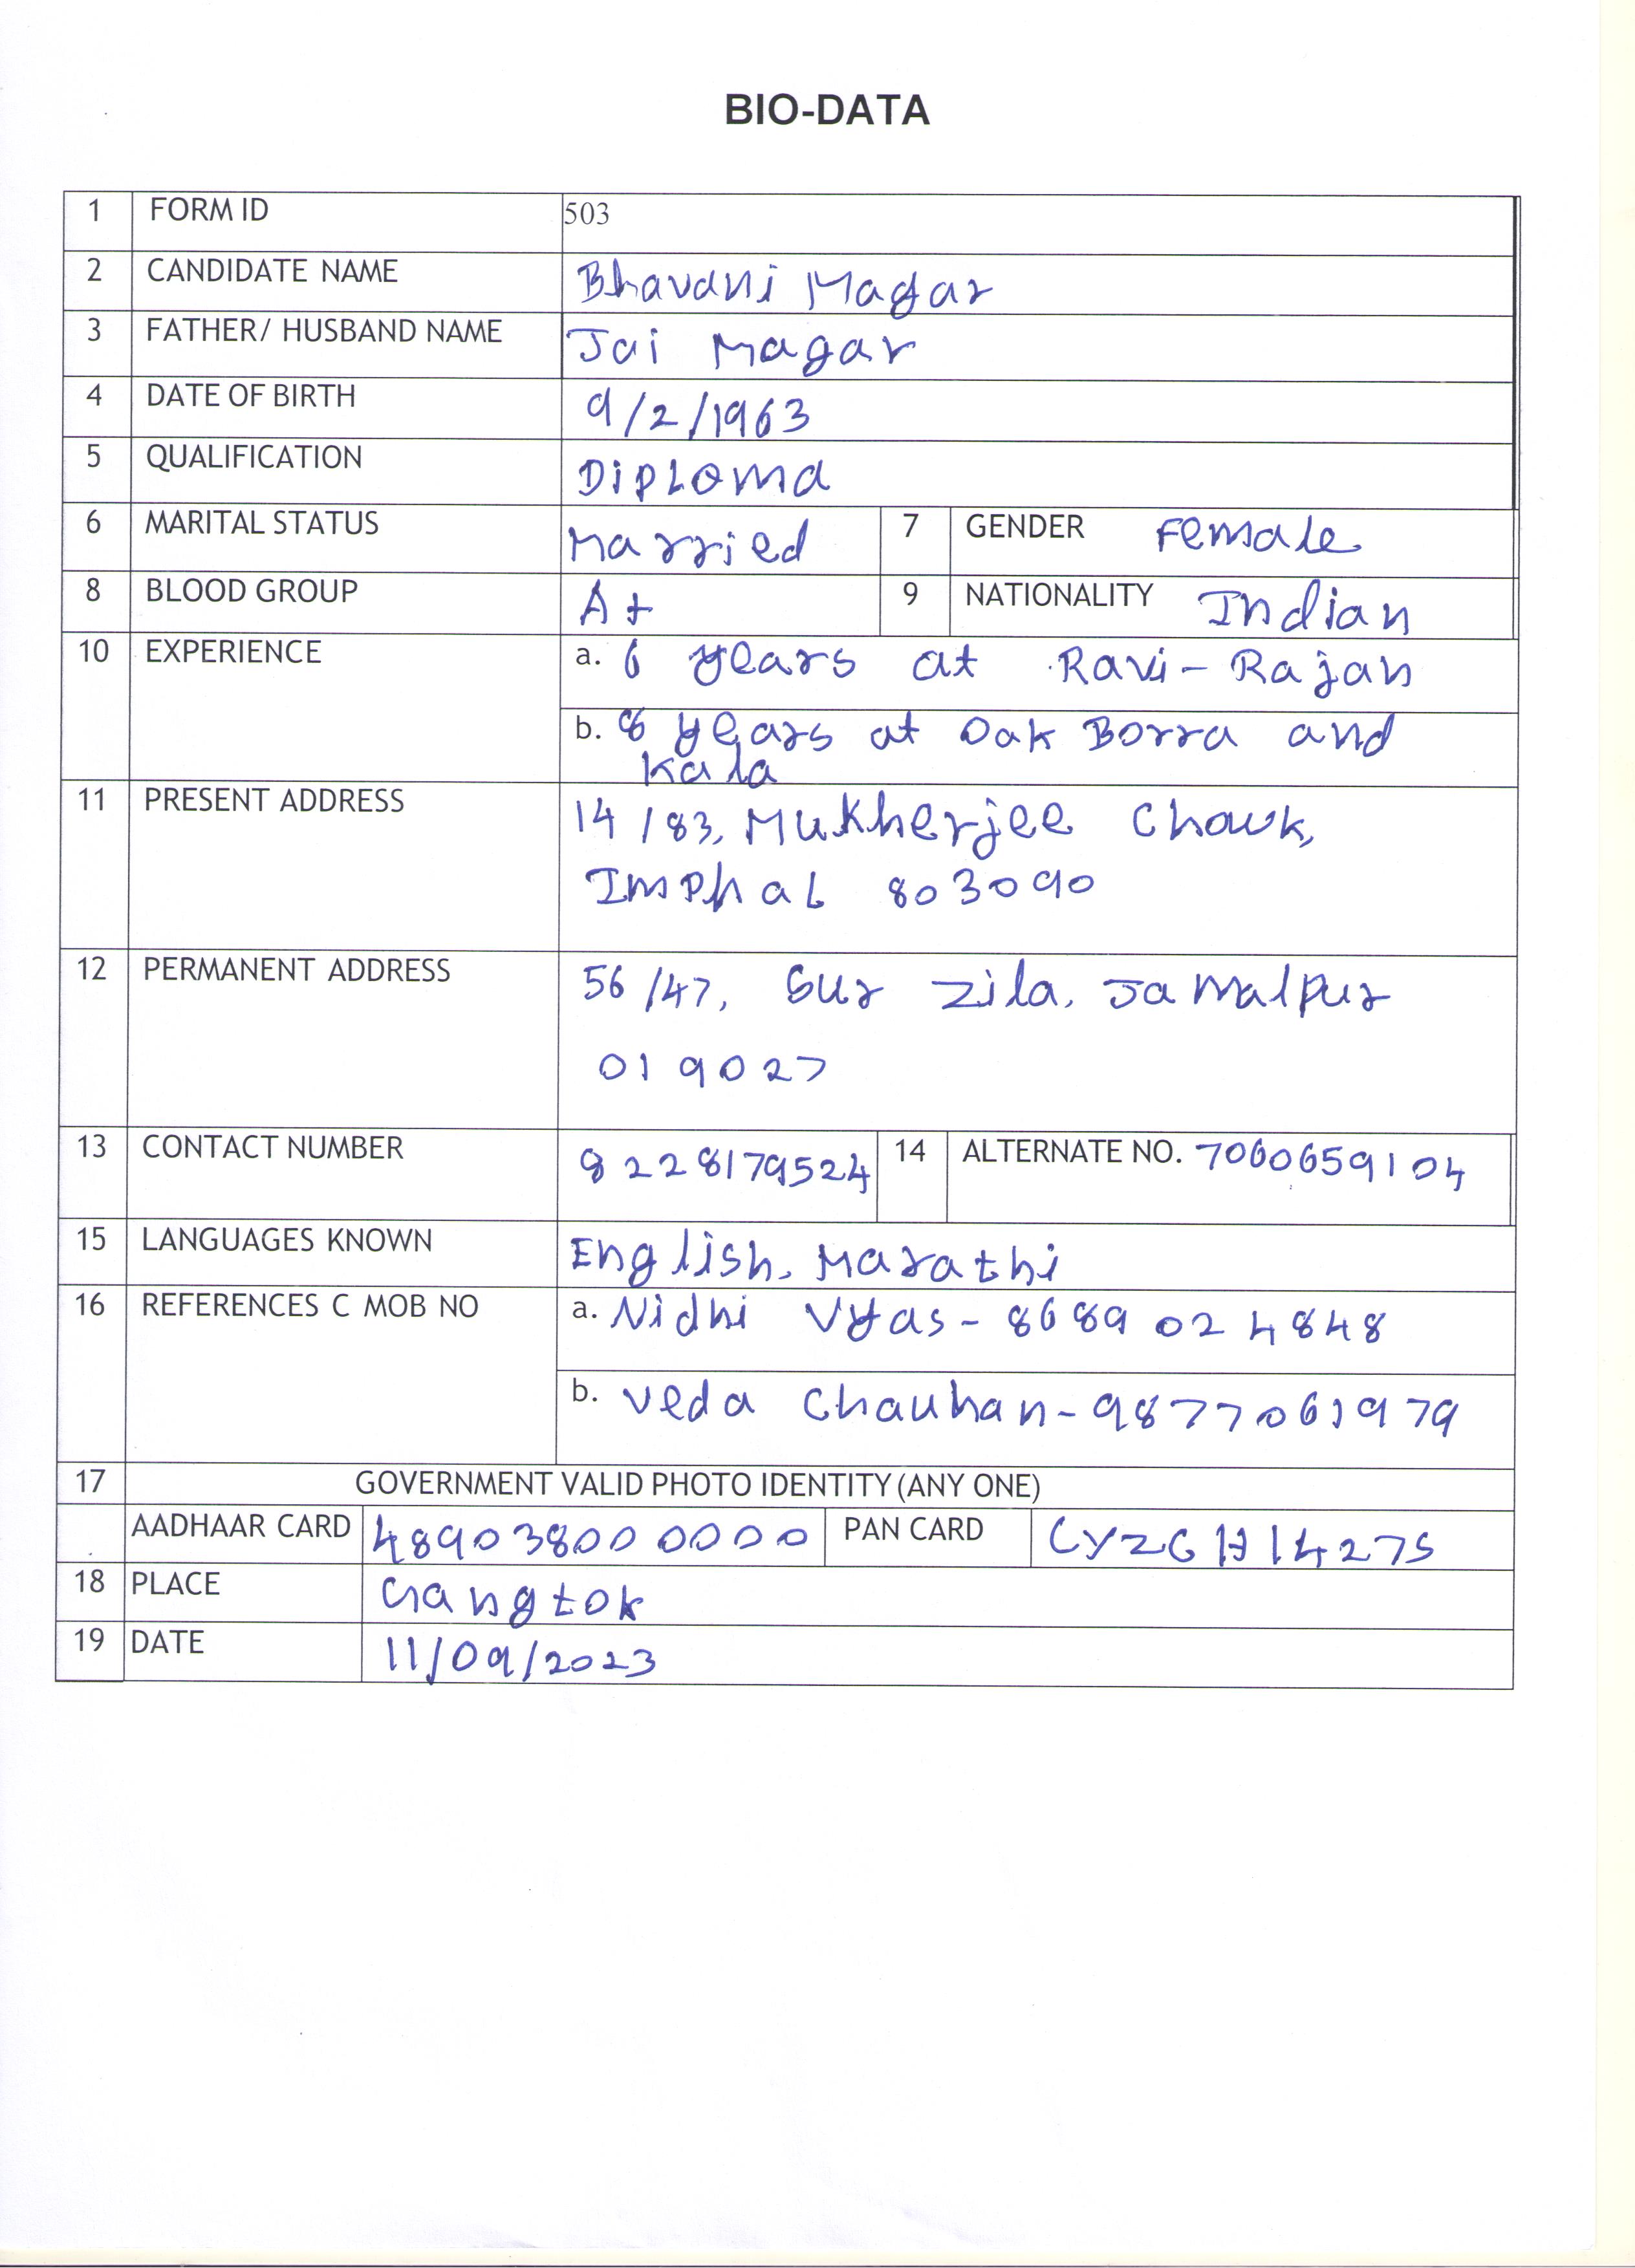 BIO-DATA
1 FORM ID 503
2 CANDIDATE NAME Bhavani Magar
3 FATHER/ HUSBAND NAME Jai Magar
4 DATE OF BIRTH 9/2/1963
5 QUALIFICATION Diploma
6 MARITAL STATUS Married 7 GENDER Female
8 BLOOD GROUP A+ 9 NATIONALITY Indian
10 EXPERIENCE a. 6 years at Ravi-Rajan
b. 8 years at Oak Borra and
Kala
11 PRESENT ADDRESS 14/83, Mukherjee Chowk,
Imphal 803090
12 PERMANENT ADDRESS 56/47, Sur Zila, Jamalpur
019027
13 CONTACT NUMBER 8228179524 14 ALTERNATE NO. 7060659104
15 LANGUAGES KNOWN English, Marathi
16 REFERENCES C MOB NO a. Nidhi Vyas-8689024848
b. Veda Chauhan-9877061979
17 GOVERNMENT VALID PHOTO IDENTITY (ANY ONE)
AADHAAR CARD 489038000000 PAN CARD CYZGH1427S
18 PLACE Gangtok
19 DATE 11/09/2023